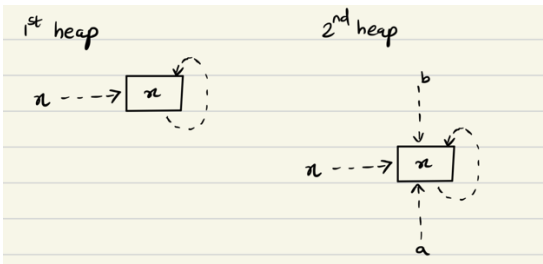 1st heap
2nd heap
x
x
b
x
x
a